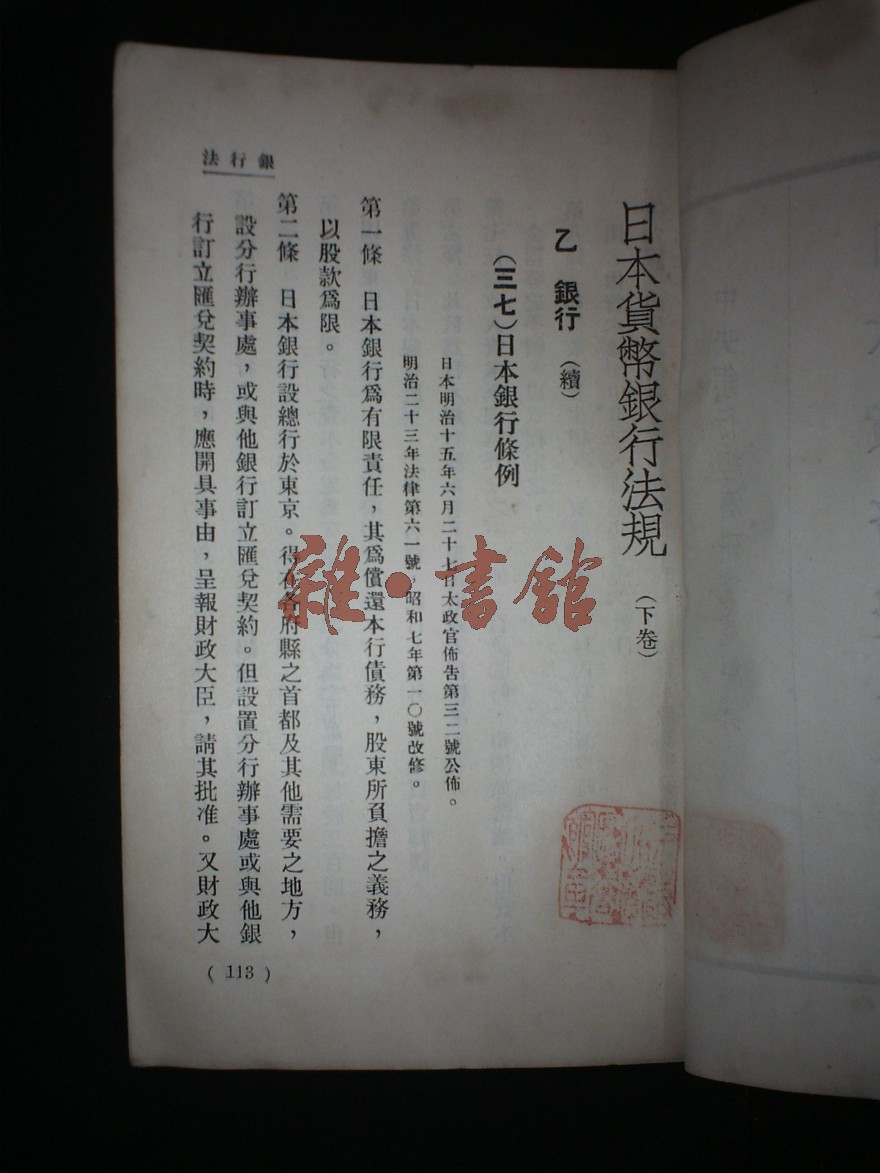 日本貨幣銀行法規（下卷）
乙 銀行（續）
（三七）日本銀行條例
日本明治十五年六月二十七日太政官佈告第三二號公佈。
明治二十三年法律第六一號，昭和七年第一〇號改修。
第一條 日本銀行爲有限責任，其爲償還本行債務，股東所負擔之義務，
以股款爲限。
第二條 日本銀行設總行於東京。得在各府縣之首都及其他需要之地方，
設分行辦事處，或與他銀行訂立匯兌契約。但設置分行辦事處或與他銀
行訂立匯兌契約時，應開具事由，呈報財政大臣，請其批准。又財政大
銀行法
（113）
雜·書館